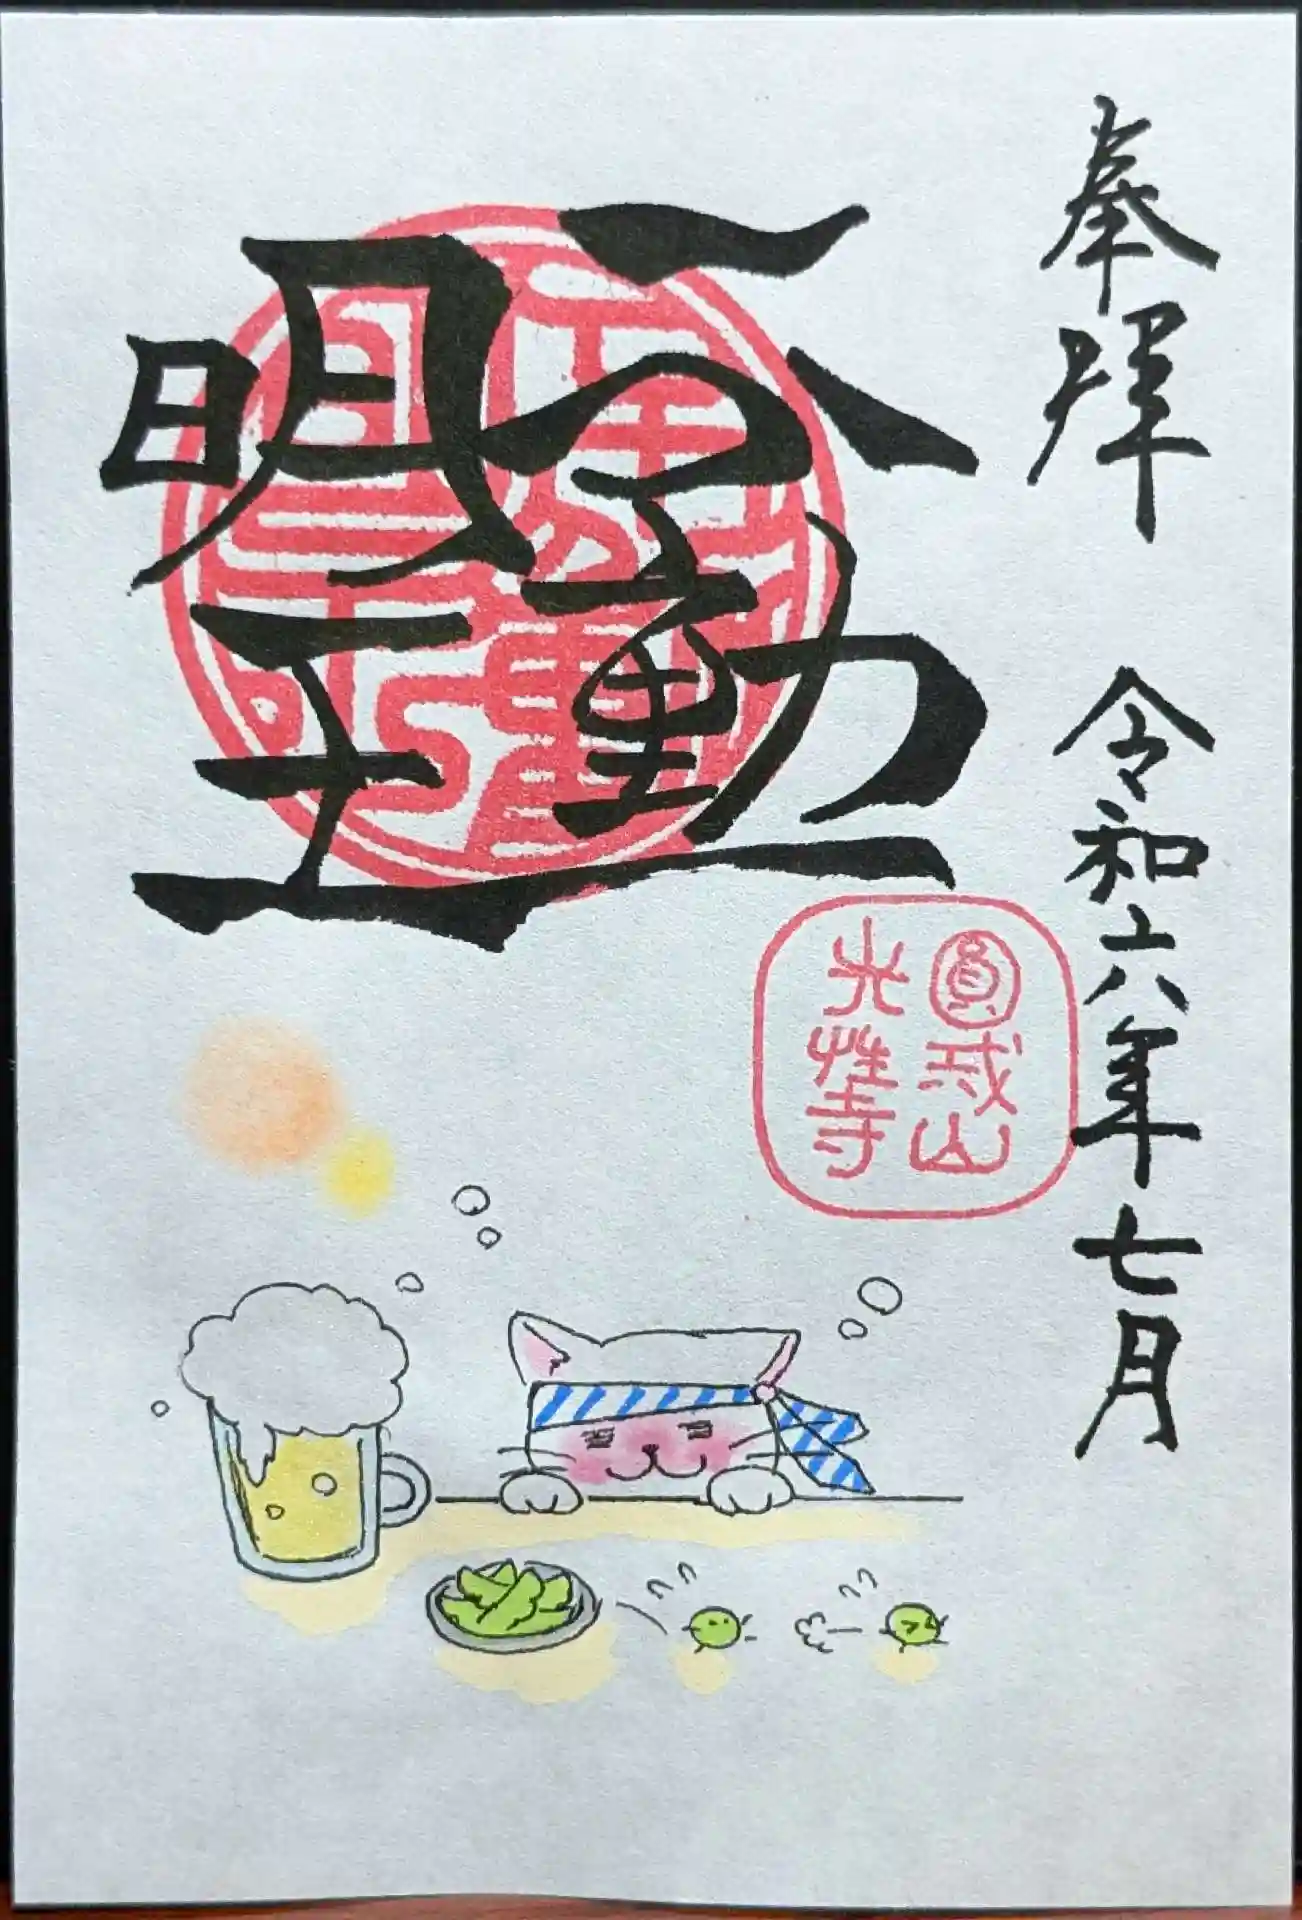 奉拝　令和六年七月
不動
明王
圓戒山
光性寺